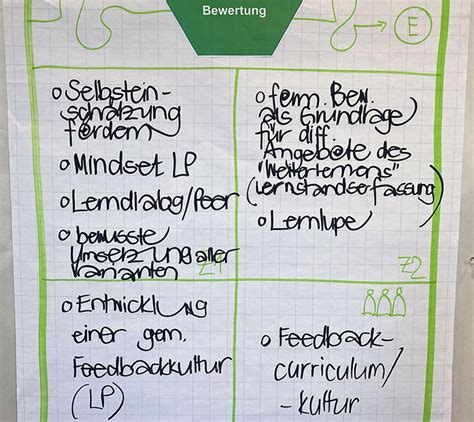 Bewertung
E
o Selbstein-
schätzung
fördern
o Mindset LP
o Lerndialog/Peer
o bewusste
Umsetzung aller
Varianten
Z1
o form. Bew.
als Grundlage
für diff.
Angebote des
"Weiterlernens"
(Lernstandserfassung)
o Lernlupe
Z2
o Entwicklung
einer gem.
Feedbackkultur
(LP)
o Feedback-
curriculum/
-kultur